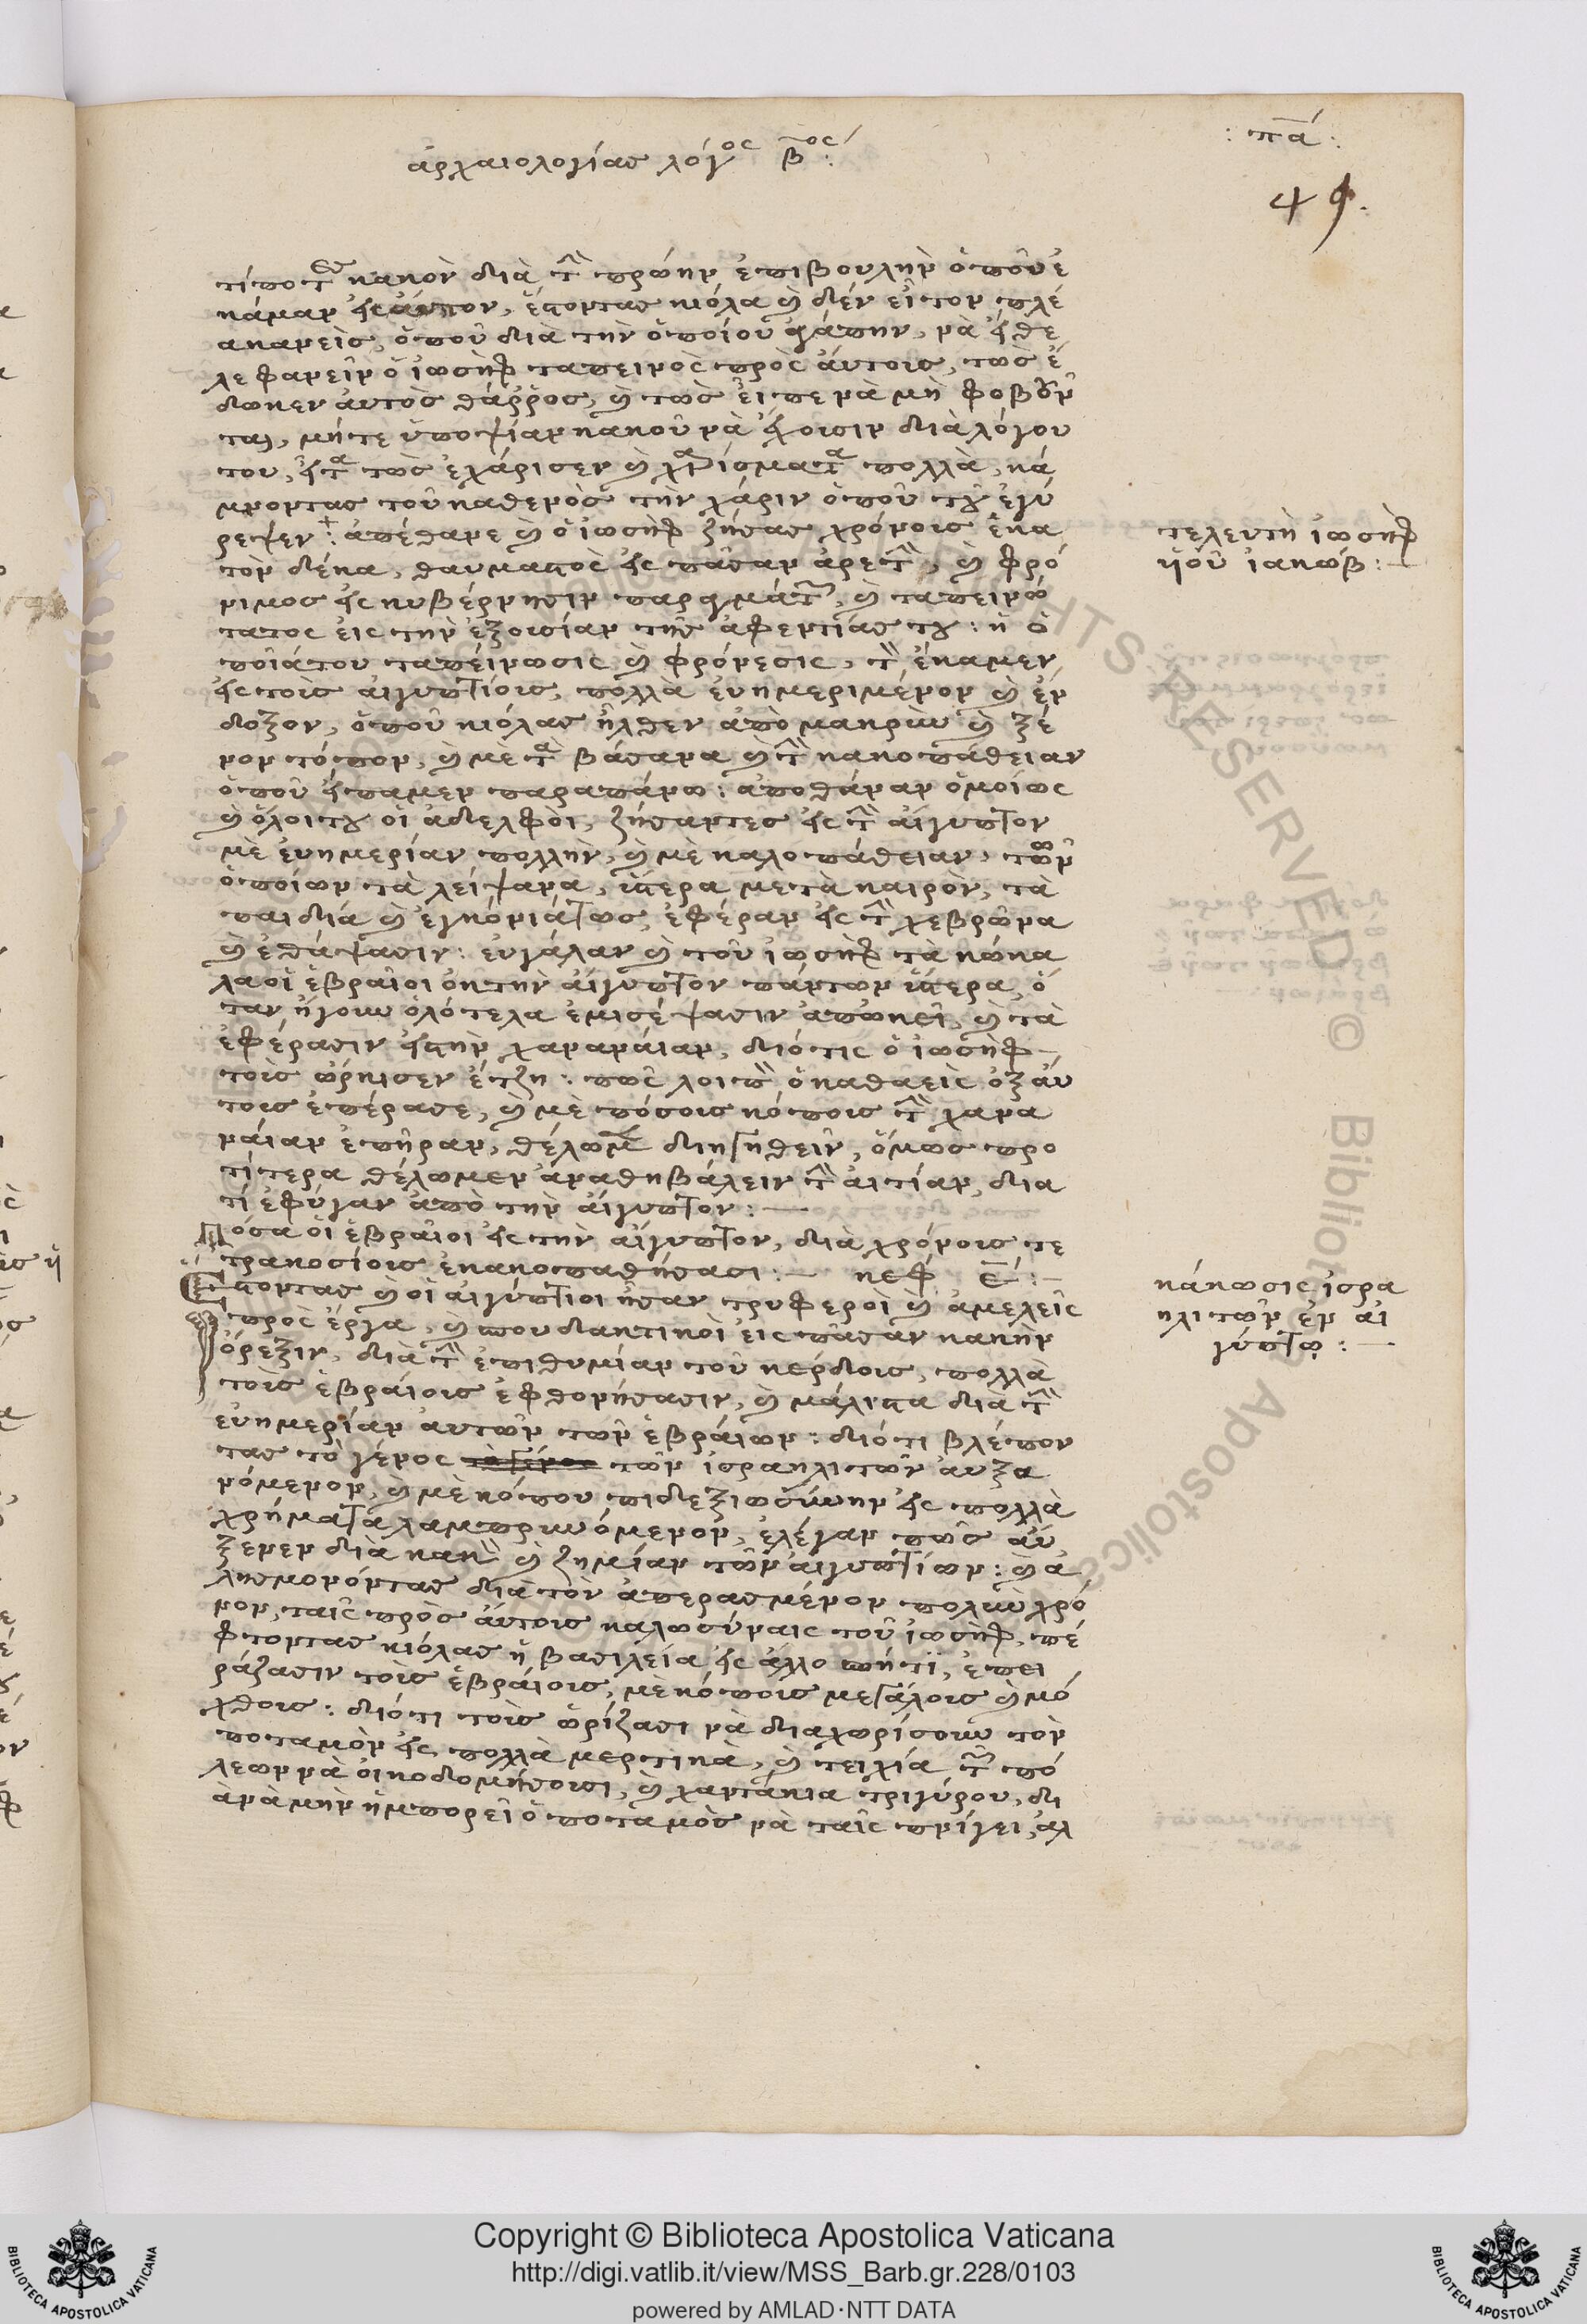 ἀρχαιολογίας λόγος βος:
: πα :
49.
τίποτας κακὸν διὰ τὴν πρώην ἐπιβουλὴν ὁποῦ ἐ
κάμαν εἰς αὐτον, ἔστοντας κιόλα καὶ δὲν εἶτον πλέ
ανανεὶς, ὁποῦ διὰ τὴν ὁποίου ἀγάπην, νὰ
λε φανεῖν ὁ ἰωσὴφ ταπεινὸς πρὸς αὐτους, τῶς ἔ
δωκεν ἀυτὸς θάῤῥος, καὶ τῶς εἶπε νὰ μὴ φοβοῦν
ται, μήτε ὑποψίαν κακοῦ νὰ ἔχουσιν διὰ λόγου
του, εἶτα τῶς ἐχάρισεν καὶ χαρίσματα πολλὰ, κά
μνοντας τοῦ καθενὸς τὴν χάριν ὁποῦ του ἐγύ
ρεψεν: ἀπέθανε καὶ ὁ ἰωσὴφ ζήσας χρόνους ἑκα
τὸν δέκα, θαυμαστὸς εἰς πᾶσαν ἀρετὴν, καὶ φρό
νιμος εἰς κυβέρνησιν παραγμάτων, καὶ ταπεινώ
τατος εἰς τὴν ἐξουσίαν τῆς ἀφεντίας του: ἡ ὁ
ποιάτου ταπείνωσις καὶ φρόνεσις, τὸν ἔκαμεν
εἰς τοὺς αἰγυπτίους, πολλὰ εὐημεριμένον καὶ ἔν
δοξον, ὁποῦ κιόλας ἦλθεν ἀπὸ μακρυὺ καὶ ξέ
νον τόπον, καὶ μὲ τὰ βάσανα καὶ τὴν κακοπάθειαν
ὁποῦ εἴπαμεν παραπάνω: ἀποθάναν ὁμοίως
καὶ ὅλοι του οἱ ἀδελφοὶ, ζήσαντες εἰς τὴν αἴγυπτον
μὲ εὐημερίαν πολλὴν, καὶ μὲ καλοπάθειαν, τῶν
ὁποίων τὰ λείψανα, ὕστερα μετὰ καιρὸν, τὰ
παιδιά καὶ ἐγκόνιάτως ἐφέραν εἰς τὴν χεβρῶνα
καὶ ἐθάψασιν: εὐγάλαν καὶ τοῦ ἰωσὴφ τὰ κώκα
λα οἱ ἑβραῖοι ὀκ τὴν αἴγυπτον πάντων ὕστερα, ὅ
ταν ἤγουν ὁλότελα ἐμισέψασιν ἀπὠκεῖ, καὶ τὰ
ἐφέρασιν εἰς τὴν χαναναίαν, διότις ὁ ἰωσὴφ
τοὺς ὥρκισεν ἔτζη: πῶς λοιπὸν ὁ καθαεὶς ὀξ αὐ
τους ἐπέρασε, καὶ μὲ πόσους κόπους τὴν χανα
ναίαν ἐπῆραν, θέλωμεν διηγηθεῖν, ὅμως προ
τίτερα θέλωμεν ἀναθηβάλειν τὴν αἰτίαν, δια
τί ἐφύγαν ἀπὸ τὴν αἴγυπτον: —
Πόσα οἱ ἑβραῖοι εἰς τὴν αἴγυπτον, διὰ χρόνους τε
τρακοσίους ἐκακοπαθήσασι: — κεφ ε: —
Ἔστοντας καὶ οἱ αἰγύπτιοι ἦσαν τρυφεροὶ καὶ ἀμελεῖς
πρὸς ἔργα, καὶ σπουδακτικοὶ εἰς πᾶσαν κακὴν
ὄρεξιν, διὰ τὴν ἐπιθυμίαν τοῦ κέρδους, πολλὰ
τοὺς ἑβραίους ἐφθονήσασιν, καὶ μάλιστα διὰ τὴν
εὐημερίαν αὐτῶν τῶν ἑβραίων: διότι βλέπον
τας τὸ γένος τὸ γένος τῶν ἰσραηλιτῶν αὐξα
νόμενον, καὶ μὲ κόπου πιδεξιωσύνην εἰς πολλὰ
χρήματα λαμπρυνόμενον, ἐλέγαν πῶς αὐ
ξενεν διὰ κακὸν καὶ ζημίαν τῶν αἰγυπτίων: καὶ ἀ
λησμονόντας διὰ τὸν ἀπερασμένον πολὺν χρό
νον, ταῖς πρὸς αὐτους καλωσύναις τοῦ ἰωσὴφ, πέ
φτοντας κιόλας ἡ βασιλεία εἰς ἄλλο σπήτι, ἐπει
ράζασιν τοὺς ἑβραίους, μὲ κόπους μεγάλους καὶ μό
χθους: διότι τοὺς ὡρίζασι νὰ διαχωρίσουν τὸν
ποταμὸν εἰς πολλὰ μερτικὰ, καὶ τειχία τῶν πό
λεων νὰ οἰκοδομήσουσι, καὶ χαντάκια τριγύρου, δι
ὰ νὰ μὴν ἠμπορεῖ ὁ ποταμὸς νὰ ταῖς πνίγει, ἀλ
τελευτὴ ἰωσὴφ
υἱοῦ ἰακώβ: —
κάκωσις ἰσρα
ηλιτῶν ἐν αἰ
γύπτῳ: —
Copyright © Biblioteca Apostolica Vaticana
http://digi.vatlib.it/view/MSS_Barb.gr.228/0103
powered by AMLAD·NTT DATA